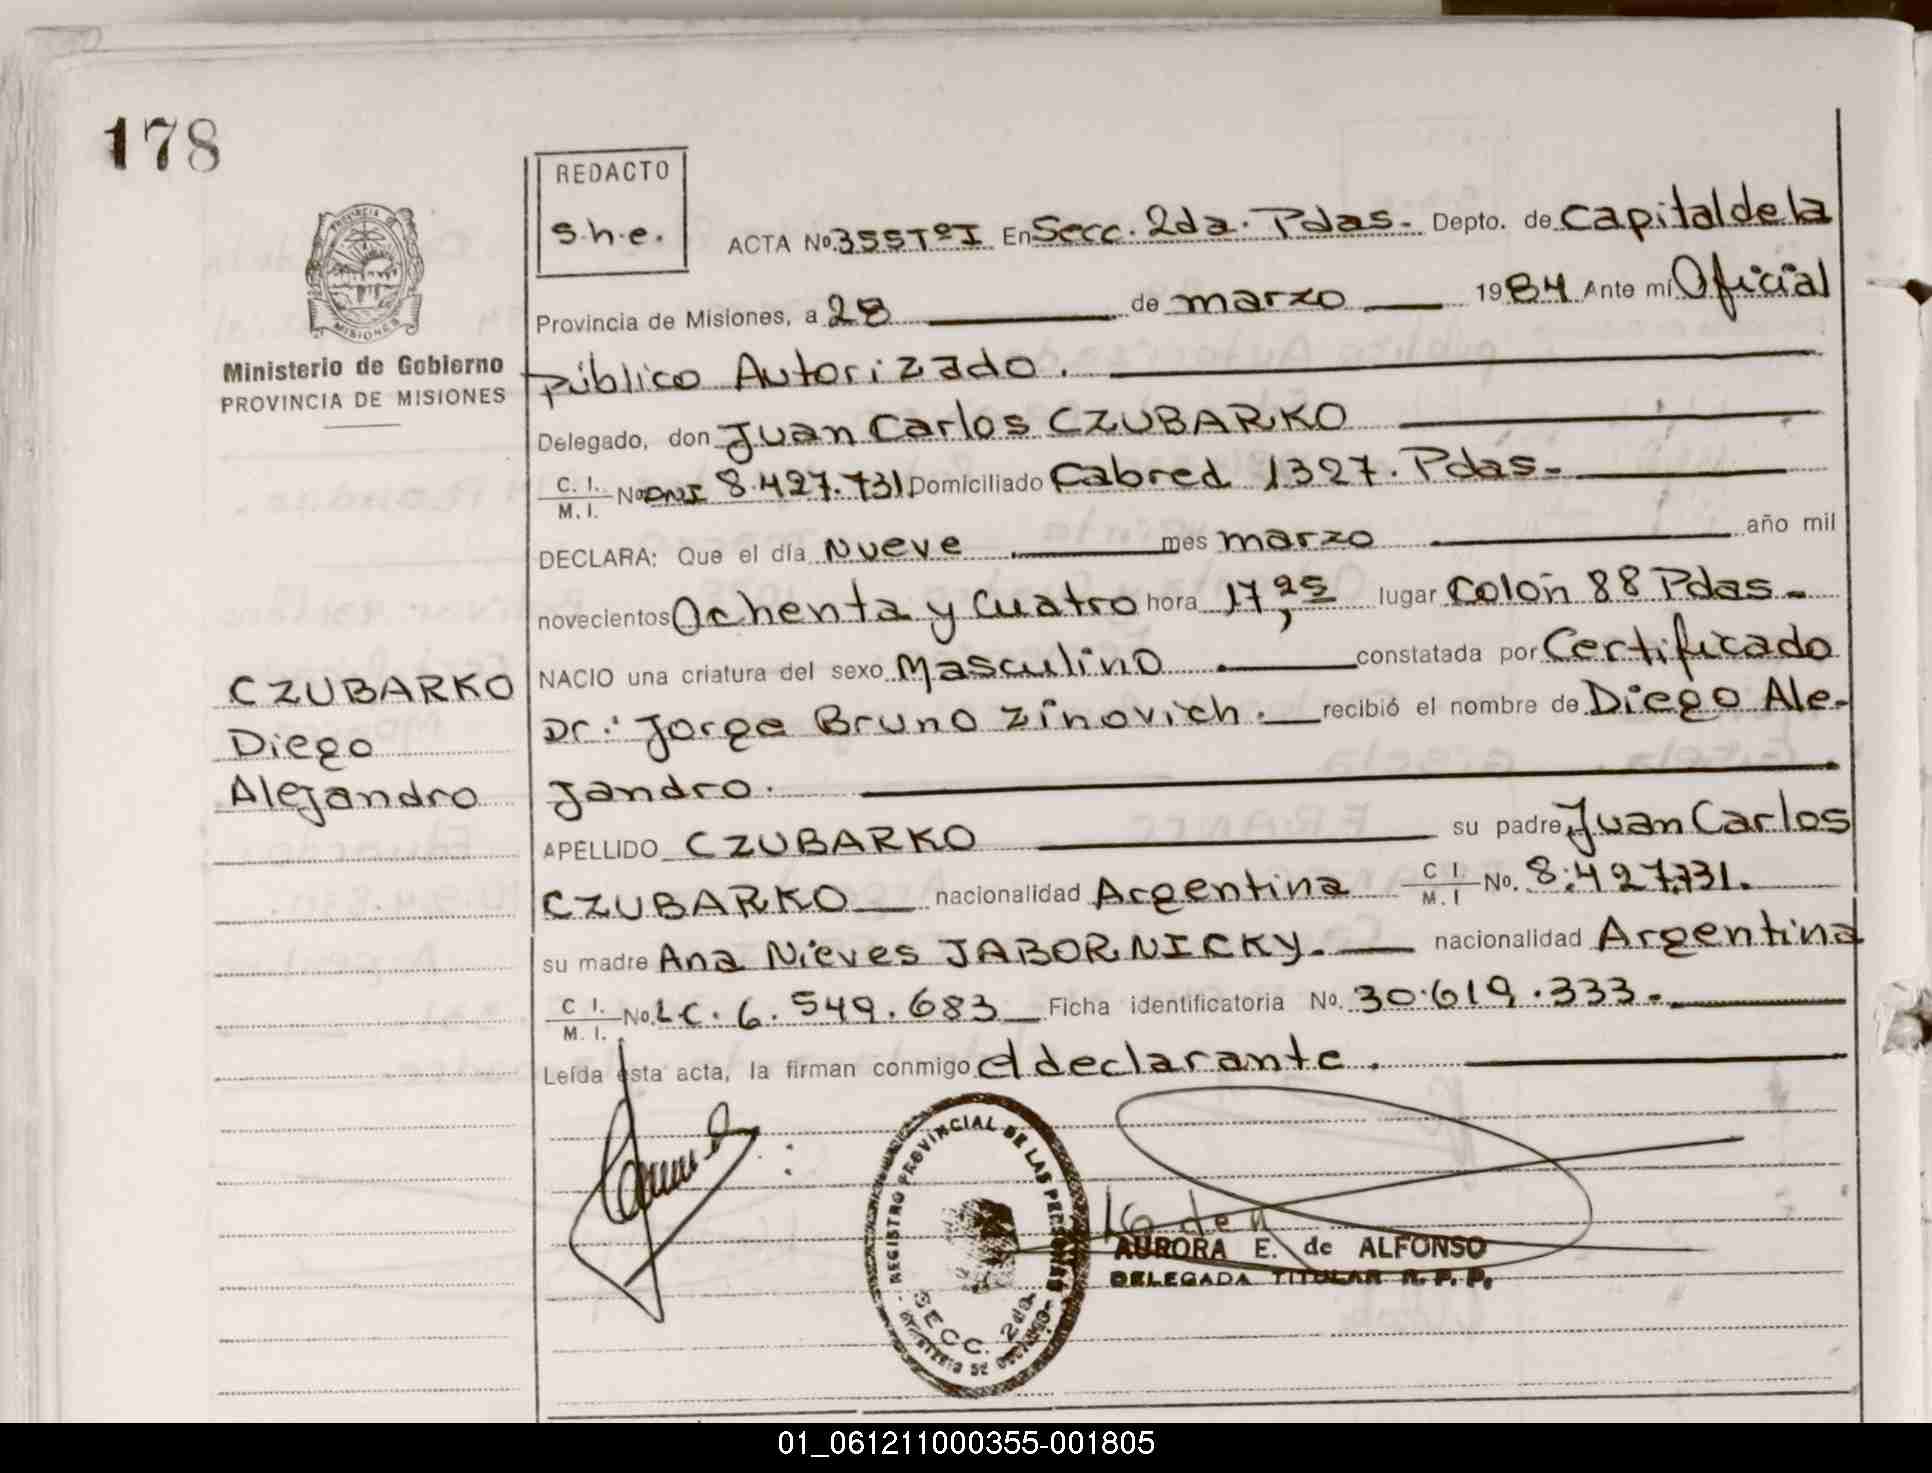 178
REDACTO
s.h.e.
ACTA No. 355 TºI En Secc. 2da. Pdas. Depto. de Capital de la
Provincia de Misiones, a 28 de marzo 1984 Ante mí Oficial
Ministerio de Gobierno
PROVINCIA DE MISIONES
PROVINCIA DE
MISIONES
público Autorizado.
Delegado, don Juan Carlos CZUBARKO
C. I.
M. I. No DNI 8.427.731 Domiciliado Cabred 1327. Pdas.
DECLARA: Que el día Nueve mes marzo año mil
novecientos Ochenta y Cuatro hora 17,25 lugar Colón 88 Pdas.
NACIO una criatura del sexo Masculino constatada por Certificado
CZUBARKO
Diego
Alejandro
Dr: Jorge Bruno Zinovich. recibió el nombre de Diego Ale-
jandro.
APELLIDO CZUBARKO su padre Juan Carlos
CZUBARKO nacionalidad Argentina C I. M. I No. 8.427.731.
su madre Ana Nieves JABORNICKY. nacionalidad Argentina
C I. M. I. No. L.C. 6.549.683 Ficha identificatoria No. 30.619.333.
Leída esta acta, la firman conmigo el declarante.
REGISTRO PROVINCIAL DE LAS PERSONAS
SECC. 2da.
AURORA E. de ALFONSO
DELEGADA TITULAR R. P. P.
01_061211000355-001805